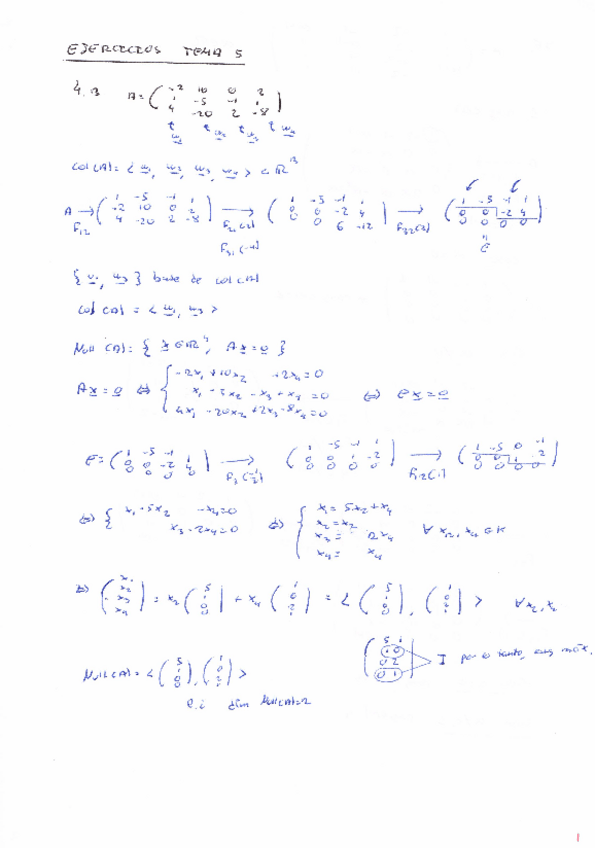 EJERCICIOS TEMA 5
4.13 A = ( -2 10 0 2
1 -5 -1 1
4 -20 2 -8 )
↑ u₁ ↑ u₂ ↑ u₃ ↑ u₄
Col(A) = < u₁, u₂, u₃, u₄ > ⊂ ℝ³
A → F₁₂ ( 1 -5 -1 1 / -2 10 0 2 / 4 -20 2 -8 ) → F₂₁(2) F₃₁(-4) ( 1 -5 -1 1 / 0 0 -2 4 / 0 0 6 -12 ) → F₃₂(3) ( 1 -5 -1 1 / 0 0 -2 4 / 0 0 0 0 )
" E
{ u₁, u₃ } base de Col(A)
Col(A) = < u₁, u₃ >
Null(A) = { x ∈ ℝ⁴, Ax = 0 }
Ax = 0 ⇔ { -2x₁ + 10x₂ + 2x₄ = 0
x₁ - 5x₂ - x₃ + x₄ = 0 ⇔ Ex = 0
4x₁ - 20x₂ + 2x₃ - 8x₄ = 0
E = ( 1 -5 -1 1 / 0 0 -2 4 / 0 0 0 0 ) → ( 1 -5 -1 1 / 0 0 1 -2 / 0 0 0 0 ) → F₁₂(1) ( 1 -5 0 -1 / 0 0 1 -2 / 0 0 0 0 )
⇔ { x₁ - 5x₂ - x₄ = 0
x₃ - 2x₄ = 0 ⇔ { x₁ = 5x₂ + x₄
x₂ = x₂
x₃ = 2x₄ ∀ x₂, x₄ ∈ K
x₄ = x₄
⇔ ( x₁ x₂ x₃ x₄ ) = x₂ ( 5 1 0 0 ) + x₄ ( 1 0 2 1 ) = < ( 5 1 0 0 ), ( 1 0 2 1 ) > ∀ x₂, x₄
Null(A) = < ( 5 1 0 0 ), ( 1 0 2 1 ) > ( 5 1 / 1 0 / 0 2 / 0 1 ) I por lo tanto, rang máx.
dim Null(A) = 2
1